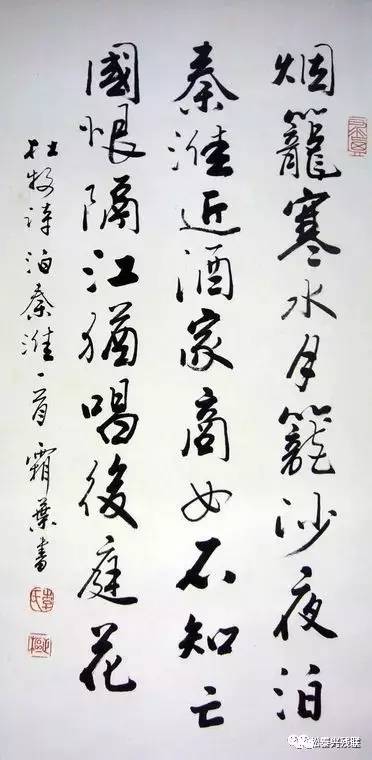 烟籠寒水月籠沙夜泊
秦淮近酒家商女不知亡
國恨隔江猶唱後庭花
杜牧诗泊秦淮一首 霜葉書
泰兴残联